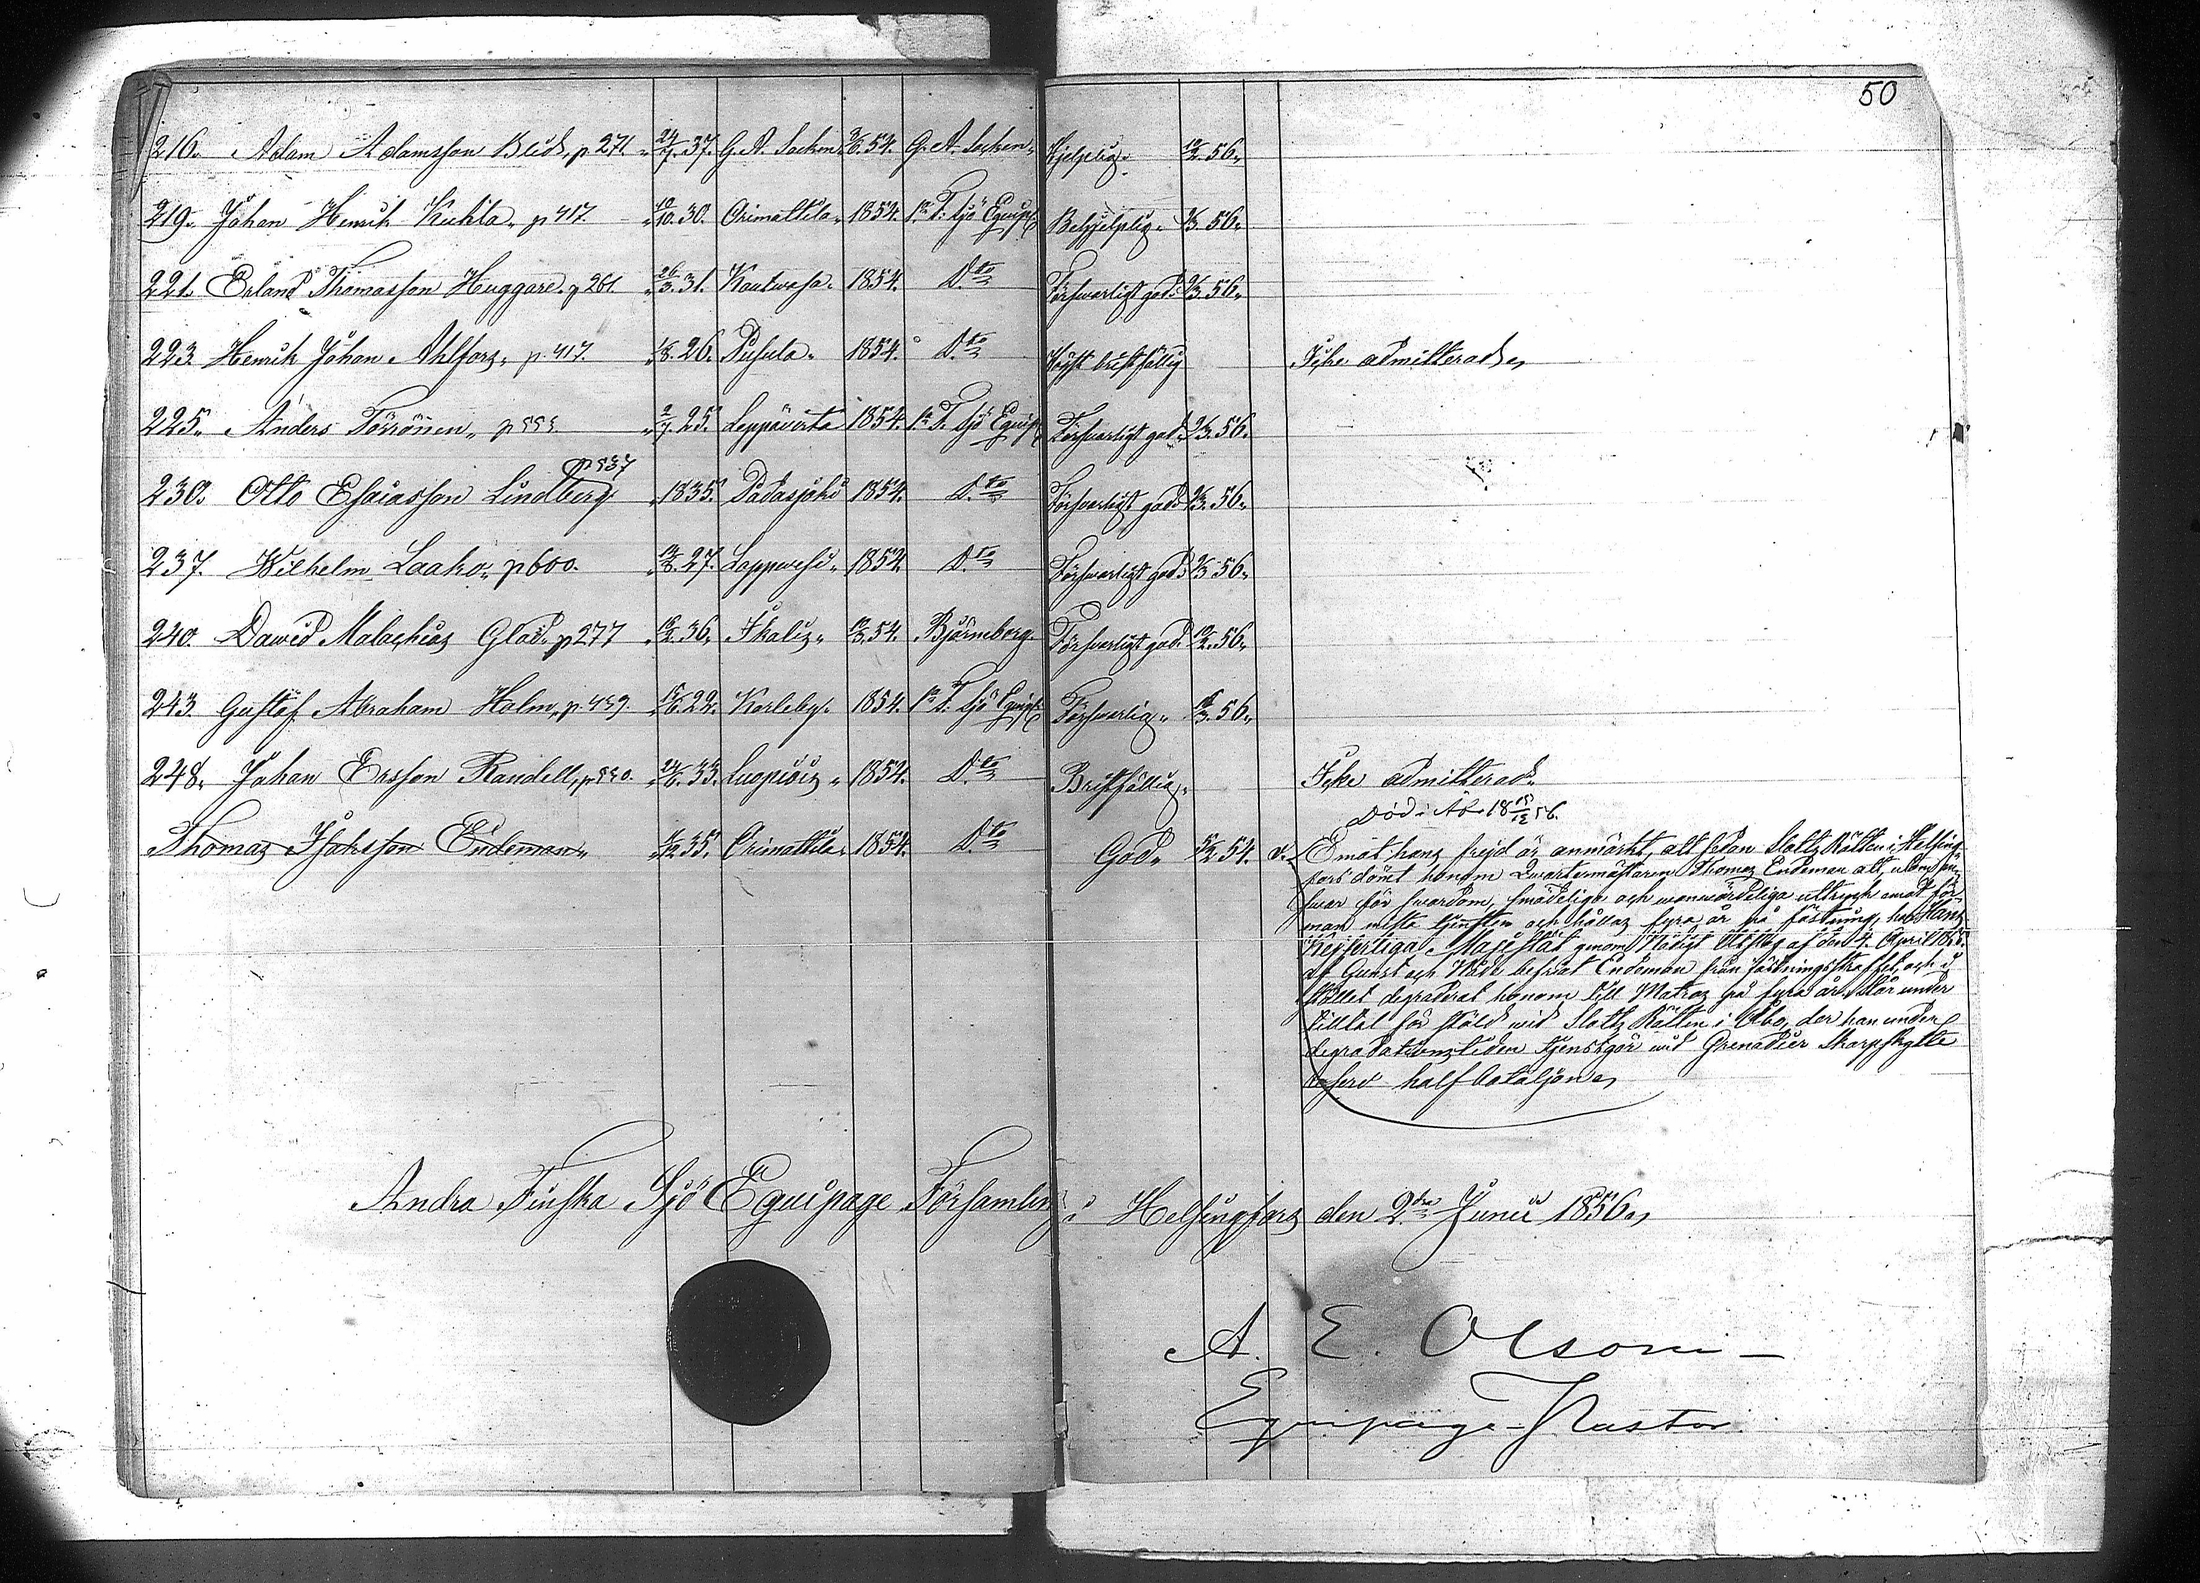 50
216. Adam Adamsson Blid, p 271 24/7. 37. G. A. Socken 54. G. A. Socken Hjelplig. 56.
219. Johan Henrik Kuhla. p 417. 10/10. 30. Orimattila. 1854. 1a F. Sjö Equip. Behjelplig. 56.
221. Erland Thomasson Huggare. p 261. 26/3. 31. Kautvasa. 1854. D:to Försvarligt god. 56.
223. Henrik Johan Ahlfors. p. 417. 26. Pusula. 1854. D:to Högst bristfällig Icke admitterad.
225. Anders Törrönen. 2/7. 25. Leppävirta 1854. 1a F. Sjö Equip. Försvarligt god. 56.
p 537
230. Otto Esaiasson Lindberg. 1835. Padasjoki 1854. D:to Försvarligt god 56.
237. Wilhelm Laaho. p 600. 27. Lappvesi. 1854. D:to Försvarligt god 56.
240. Dawid Malachias Glad. p 277 36. Ikalis. 54. Björneborg. Försvarligt god. 56.
243. Gustaf Abraham Holm, p. 439 22. Karleby. 1854. 1a F. Sjö Equip. Försvarlig. 56.
248. Johan Ersson Randell, 33. Luopiois. 1854. D:to Bristfällig. Icke admitterad.
Död i Åbo 18 15/12 56.
Thomas Isaksson Endeman. 35. Orimattila. 1854. D:to God. 54. d. Emot hans frejd är anmärkt, att sedan Slotts Rätten i Helsing-
fors dömt honom Qvartermästaren Thomas Endeman att, utom an-
svar för svordom, smädeliga och wanvördeliga uttryck emot för-
man mista tjensten och hållas fyra år på fästning, har Hans
Kejserliga Majestät genom Nådigt Utslag af den 4. April 1856.
af Gunst och Nåde befriat Endeman från fästningsstraffet, och i
stället degraderat honom till Matros på fyra år. Står under
tilltal för stöld wid Slotts Rätten i Åbo, der han under
degradationstiden tjenstgör wid Grenadier Skarpskytte
reserv half bataljon.
Andra Finska Sjö Equipage Församling i Helsingfors den 2:dra Junii 1856.
A. E. Olsoni
Equipage-Pastor.